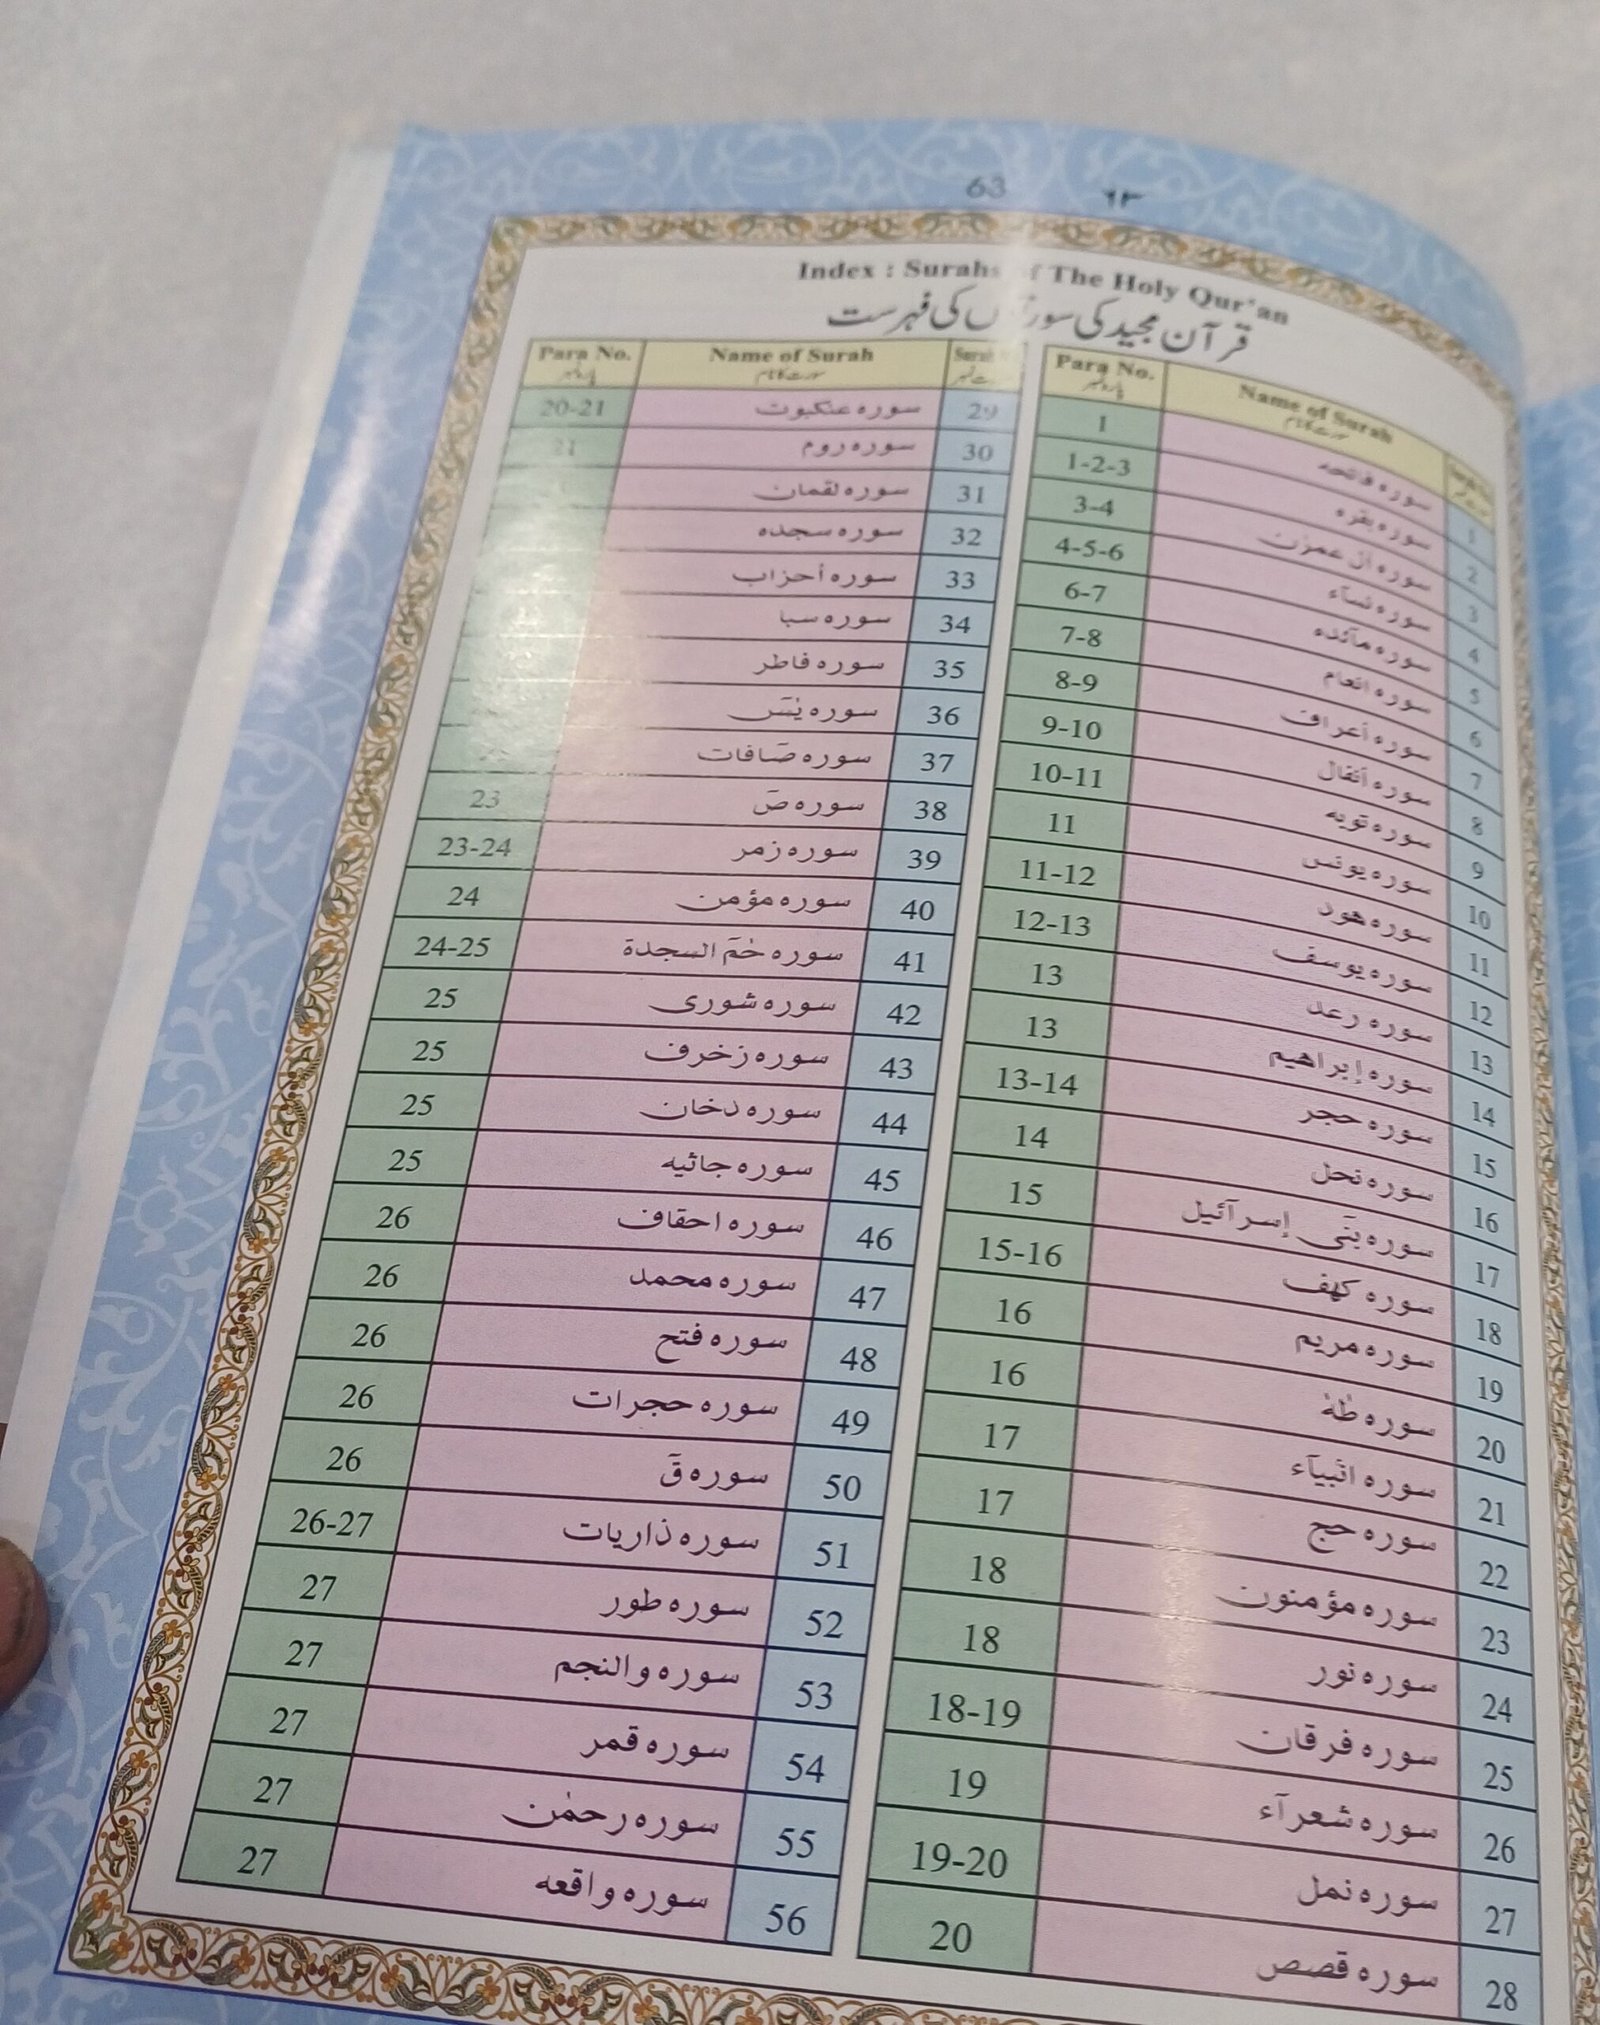 63 ٦٣
Index : Surahs of The Holy Qur'an
قرآن مجید کی سورتوں کی فہرست
Para No. Name of Surah
پارہ نمبر سورت کا نام
1 سورہ فاتحہ 1
2 سورہ بقره 1-2-3
3 سورہ اٰل عمرٰن 3-4
4 سورہ نسآء 4-5-6
5 سورہ مآئدہ 6-7
6 سورہ انعام 7-8
7 سورہ أعراف 8-9
8 سورہ أنفال 9-10
9 سورہ توبہ 10-11
10 سورہ یونس 11
11 سورہ ھود 11-12
12 سورہ یوسف 12-13
13 سورہ رعد 13
14 سورہ إبراھیم 13
15 سورہ حجر 13-14
16 سورہ نحل 14
17 سورہ بنٓی إسرآئیل 15
18 سورہ کھف 15-16
19 سورہ مریم 16
20 سورہ طٰهٰ 16
21 سورہ انبیآء 17
22 سورہ حج 17
23 سورہ مؤمنون 18
24 سورہ نور 18
25 سورہ فرقان 18-19
26 سورہ شعرآء 19
27 سورہ نمل 19-20
28 سورہ قصص 20
Para No. Name of Surah Surah
پارہ نمبر سورت کا نام
29 سورہ عنکبوت 20-21
30 سورہ روم 21
31 سورہ لقمان
32 سورہ سجدہ
33 سورہ أحزاب
34 سورہ سبا
35 سورہ فاطر
36 سورہ یٰسٓ
37 سورہ صٓافات
38 سورہ صٓ 23
39 سورہ زمر 23-24
40 سورہ مؤمن 24
41 سورہ حٰمٓ السجدة 24-25
42 سورہ شوری 25
43 سورہ زخرف 25
44 سورہ دخان 25
45 سورہ جاثیہ 25
46 سورہ احقاف 26
47 سورہ محمد 26
48 سورہ فتح 26
49 سورہ حجرات 26
50 سورہ قٓ 26
51 سورہ ذاریات 26-27
52 سورہ طور 27
53 سورہ والنجم 27
54 سورہ قمر 27
55 سورہ رحمٰن 27
56 سورہ واقعہ 27